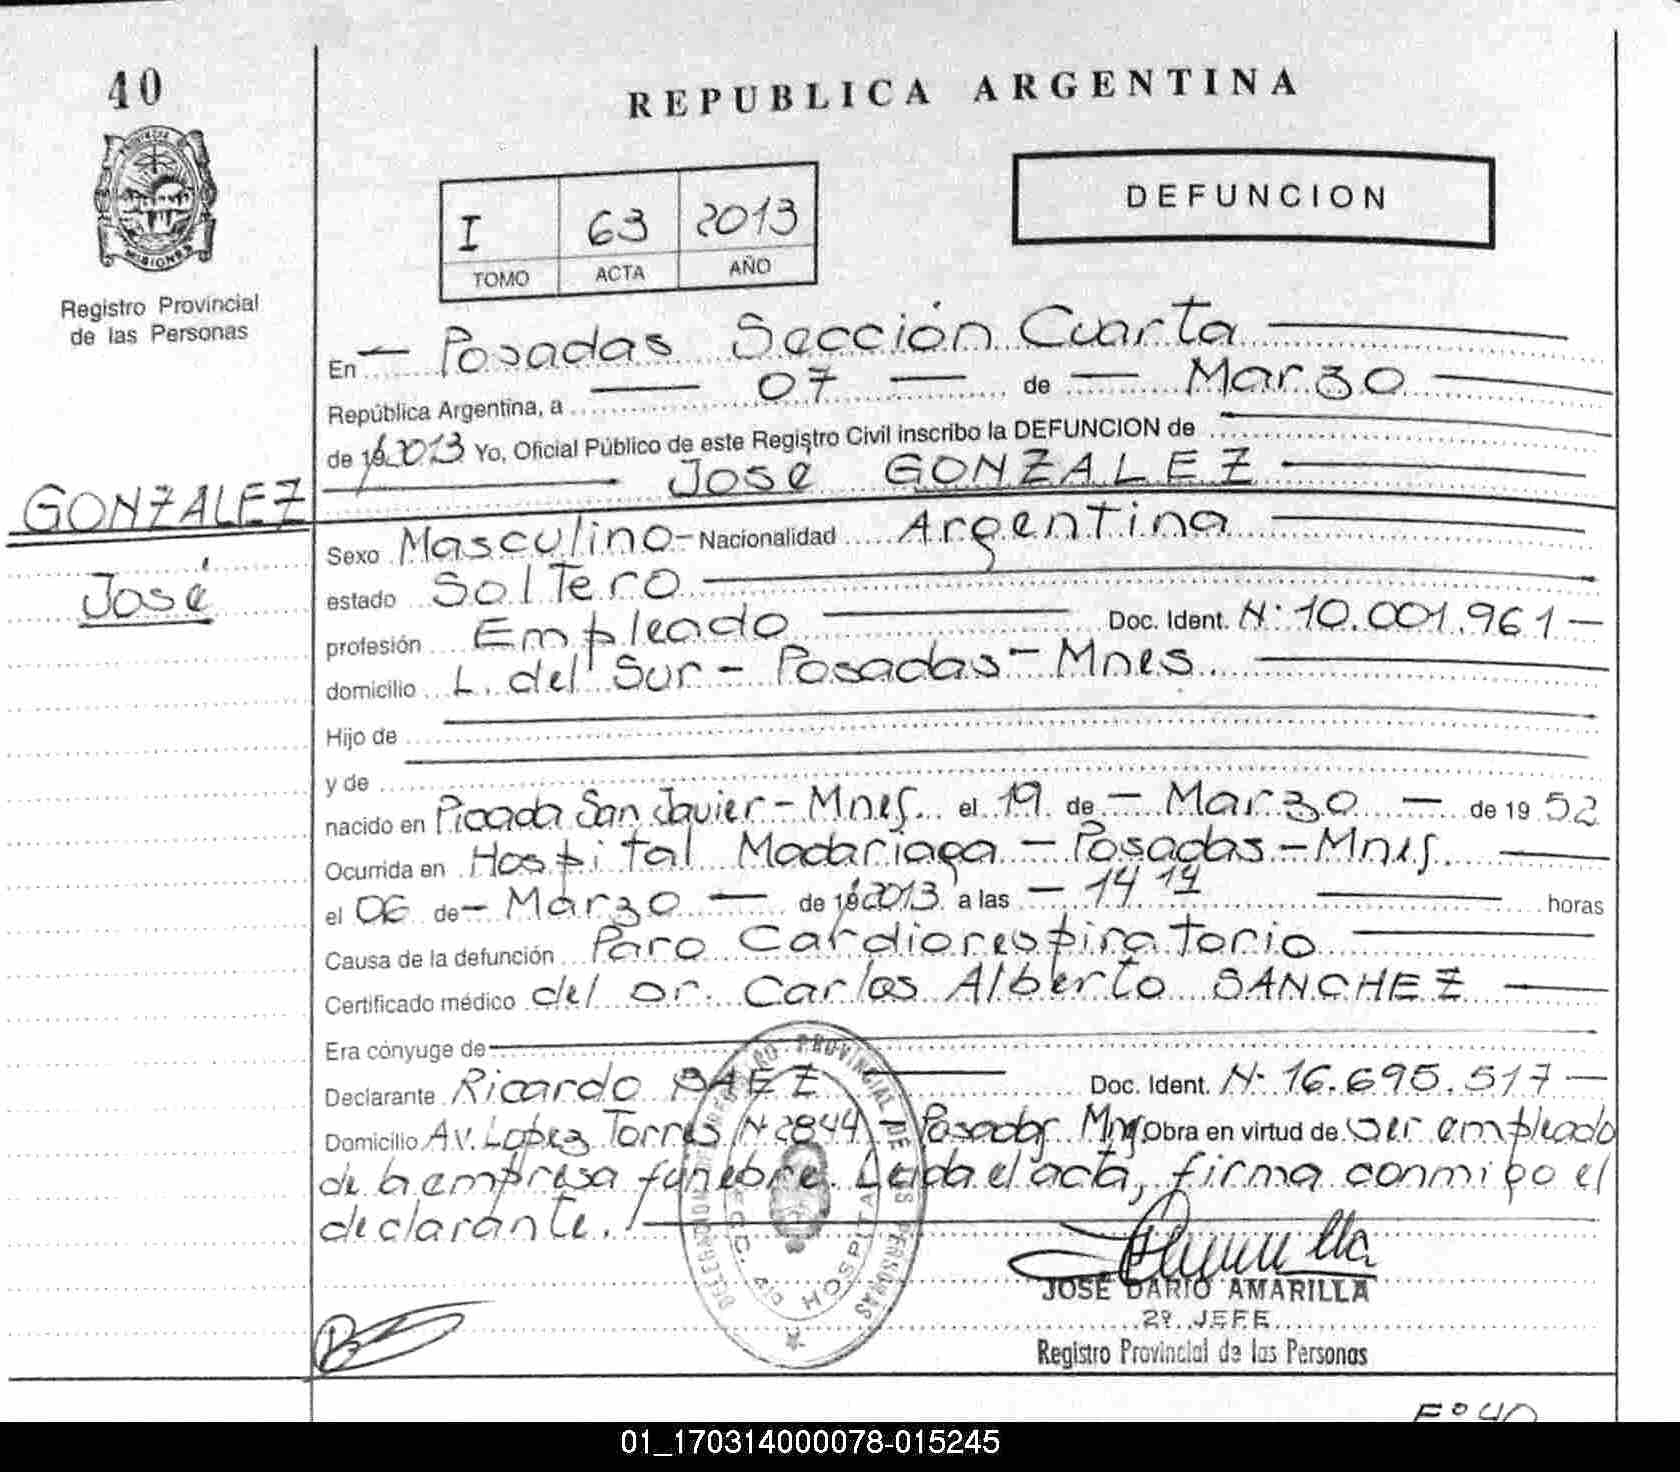 40
REPUBLICA ARGENTINA
DEFUNCION
I 63 2013
TOMO ACTA AÑO
MISIONES
Registro Provincial
de las Personas
En Posadas Sección Cuarta
República Argentina, a 07 de Marzo
de 19 2013 Yo, Oficial Público de este Registro Civil inscribo la DEFUNCION de
José GONZALEZ
GONZALEZ
José
Sexo Masculino - Nacionalidad Argentina
estado Soltero
profesión Empleado Doc. Ident. N: 10.001.961 -
domicilio L. del Sur - Posadas - Mnes
Hijo de
y de
nacido en Picada San Javier - Mnes. el 19 de - Marzo - de 19 52
Ocurrida en Hospital Madariaga - Posadas - Mnes.
el 06 de - Marzo - de 19 2013 a las - 14 14 horas
Causa de la defunción Paro Cardiorespiratorio
Certificado médico del Dr. Carlos Alberto SANCHEZ
Era cónyuge de
Declarante Ricardo BAEZ Doc. Ident. N· 16.695.517 -
Domicilio Av. Lopez Torres N· 2844 - Posadas Mnes Obra en virtud de ser empleado
de la empresa fúnebre. Leida el acta, firma conmigo el
declarante.
REGISTRO PROVINCIAL DE LAS PERSONAS
HOSPITAL
JOSE DARIO AMARILLA
2º JEFE
Registro Provincial de las Personas
Fº 40
01_170314000078-015245